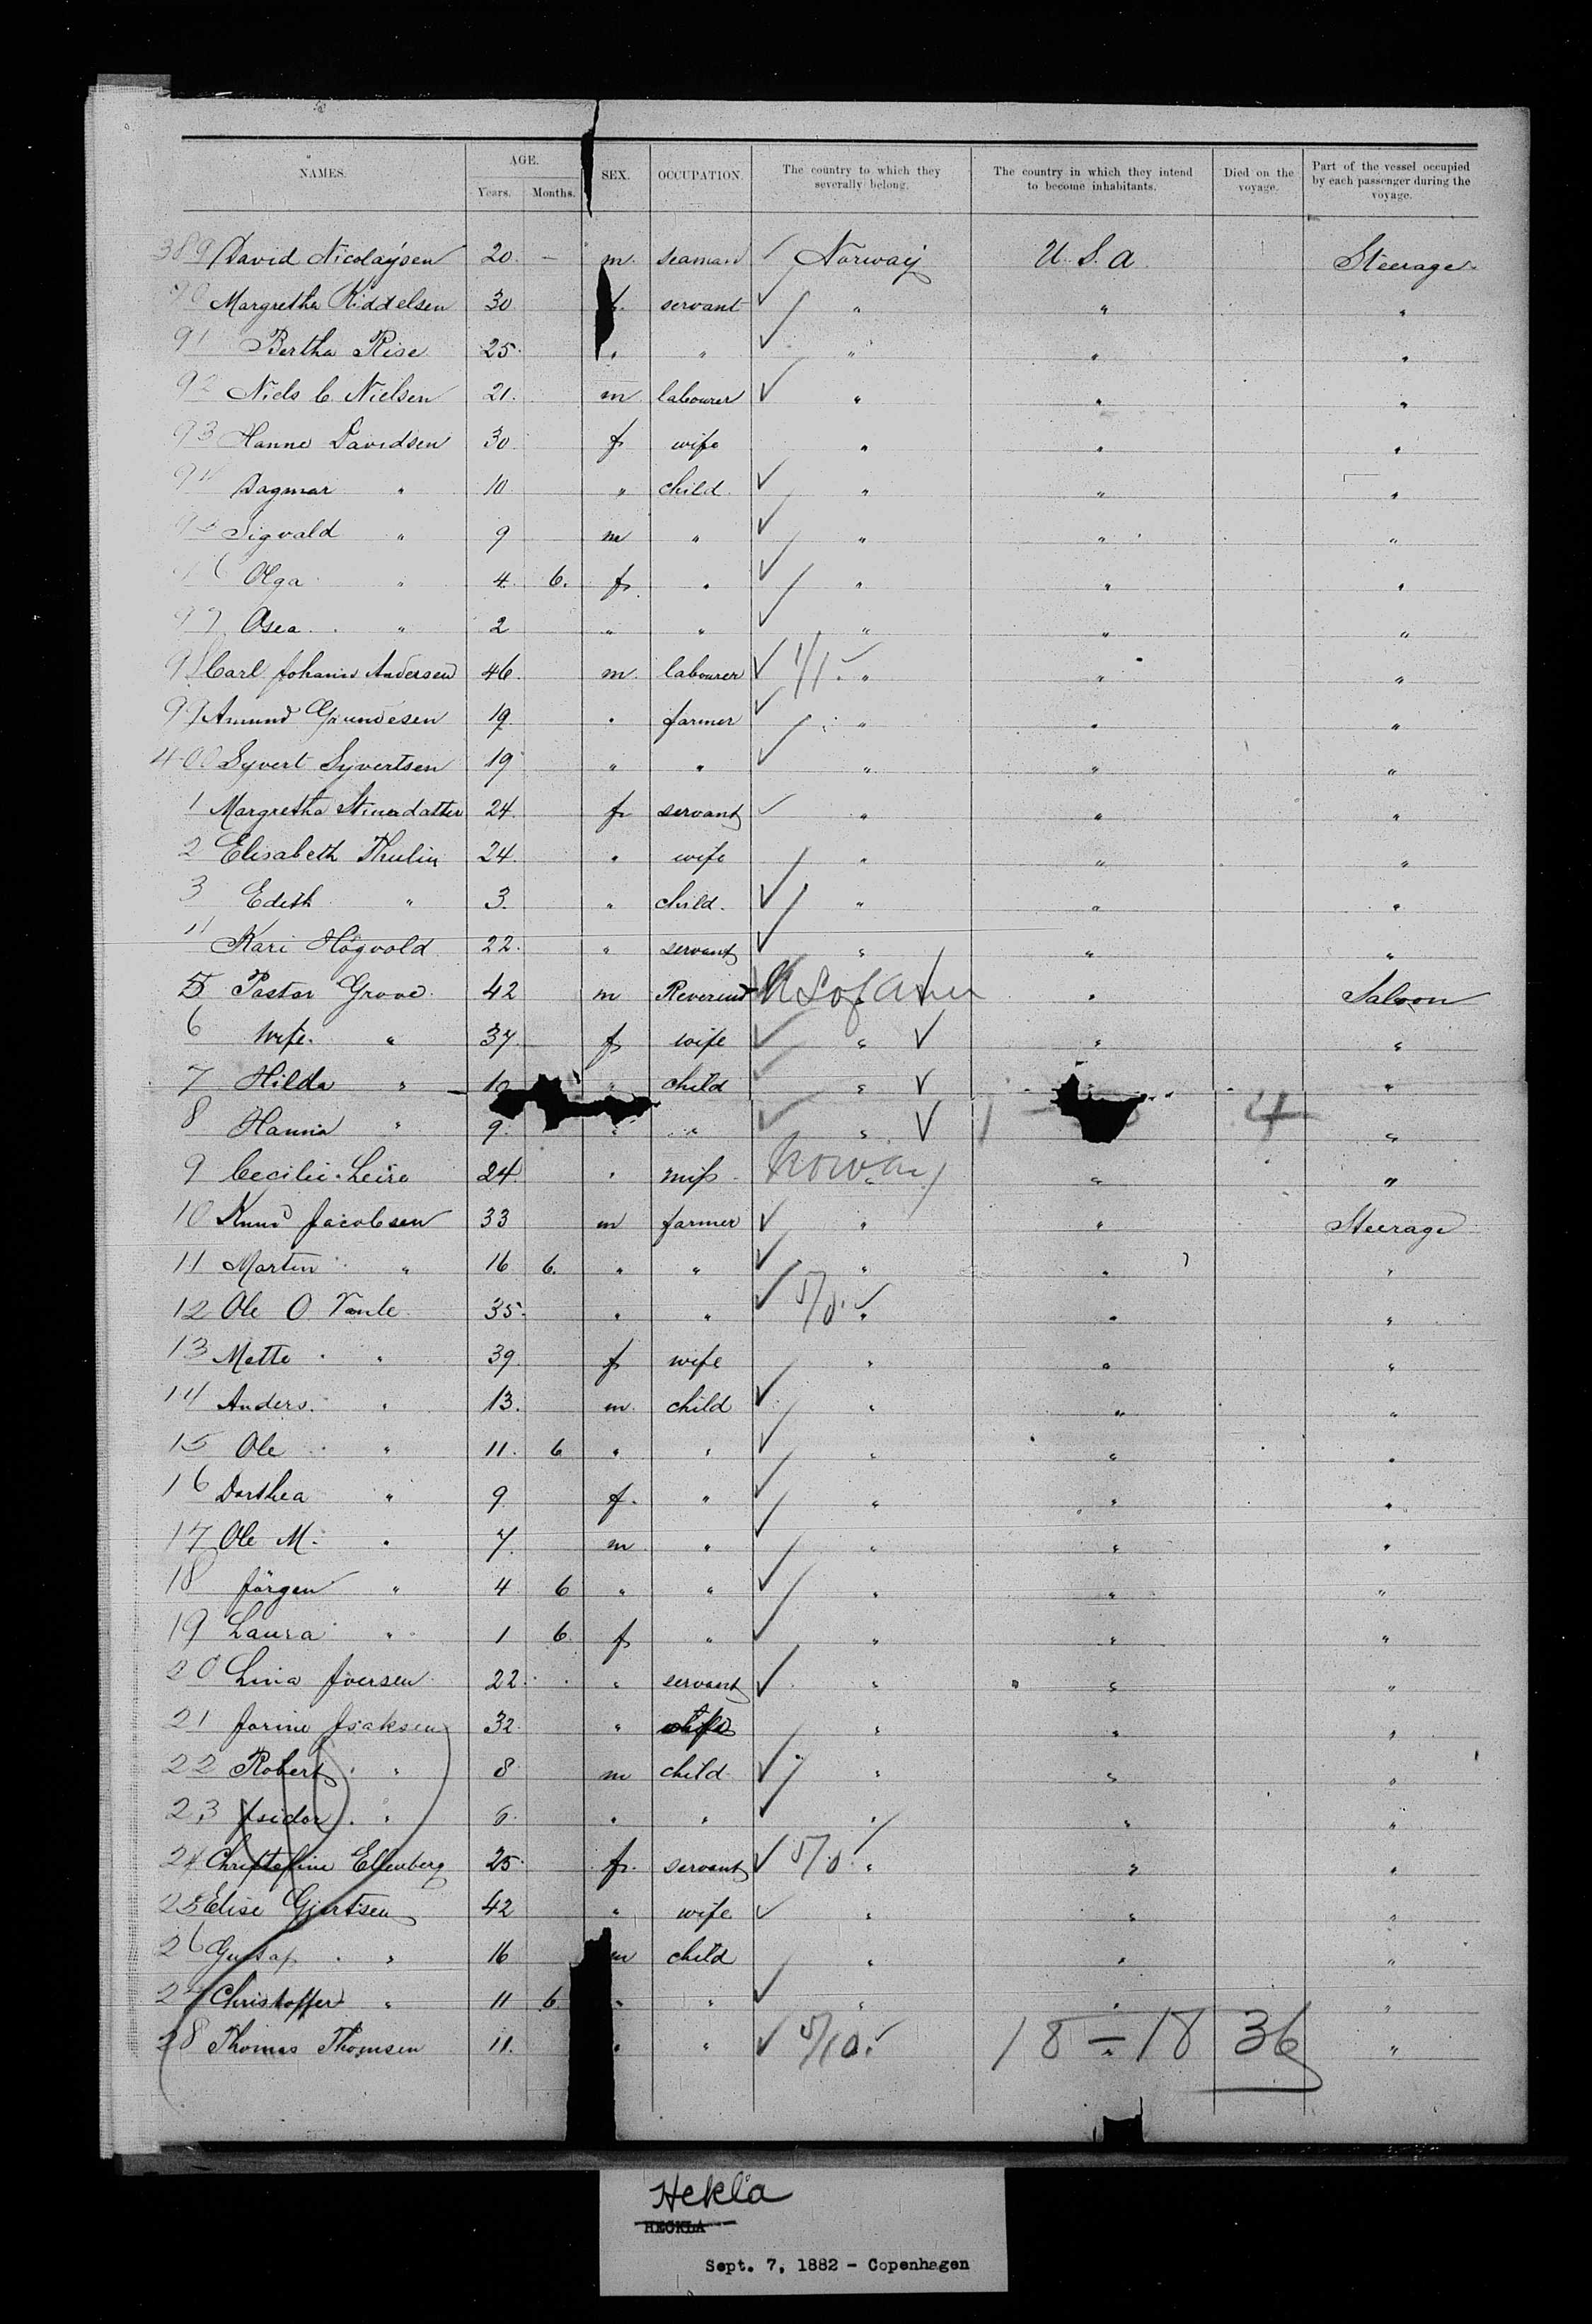 NAMES. AGE. SEX. OCCUPATION. The country to which they severally belong. The country in which they intend to become inhabitants. Died on the voyage. Part of the vessel occupied by each passenger during the voyage.
Years. Months.
389 David Nicolaysen 20. - m. seaman ✓ Norway U. S. a. Steerage
90 Margretha Kiddelsen 30 f. servant ✓ " " "
91 Bertha Rise 25. " " ✓ " " "
92 Niels C. Nielsen 21. m labourer ✓ " " "
93 Hanne Davidsen 30 f wife " " "
94 Dagmar " 10 " child ✓ " " "
95 Sigvald " 9 m " ✓ " " "
96 Olga " 4. 6. f. " ✓ " " "
97 Osea " 2 " " ✓ " " "
98 Carl Johann Andersen 46. m. labourer ✓ 1/1 ✓ " " "
99 Amund Gundesen 19. " farmer ✓ " " "
400 Syvert Syvertsen 19 " " ✓ " " "
1 Margretha 24. f servant ✓ " " "
2 Elisabeth Thulin 24. " wife " " "
3 Edith " 3. " child. ✓ " " "
4 Kari Högvold 22. " servant ✓ " " "
5 Pastor Grove 42 m Reverend U S of Amer " Saloon
6 Wife " 37. f wife ✓ " ✓ " "
7 Hilda " 10 " child ✓ " ✓ " "
8 Hanna " 9. " " ✓ " ✓ 1 4 "
9 Cecilie Leire 24. " miss Norway " " "
10 Knud Jacobsen 33 m farmer ✓ " " Steerage
11 Martin " 16 6. " " ✓ " " "
12 Ole O. 35. " " ✓ 5/0. ✓ " " "
13 Mette " 39. f wife " " "
14 Anders " 13. m. child ✓ " " "
15 Ole " 11. 6 " " ✓ " " "
16 Dorthea " 9 f. " ✓ " " "
17 Ole M. " 7. m " ✓ " " "
18 Jörgen " 4 6 " " ✓ " " "
19 Laura " 1 6 f " ✓ " " "
20 Lina Iversen 22. " servant ✓ " " "
21 Jorine Isaksen 32. " wife " " "
22 Robert " 8 m child ✓ " " "
23 Isidor " 6. " " ✓ " " "
24 Ellenberg 25. f. servant ✓ 5/0. ✓ " " "
25 Elise Gjertsen 42 " wife ✓ " " "
26 Gustaf " 16 m child " " "
27 Christoffer " 11 6 " " ✓ " " "
28 Thomas Thomsen 11. " " ✓ 5/10. ✓ " 18 - 18 36 "
Hekla
HECKLA
Sept. 7, 1882 - Copenhagen